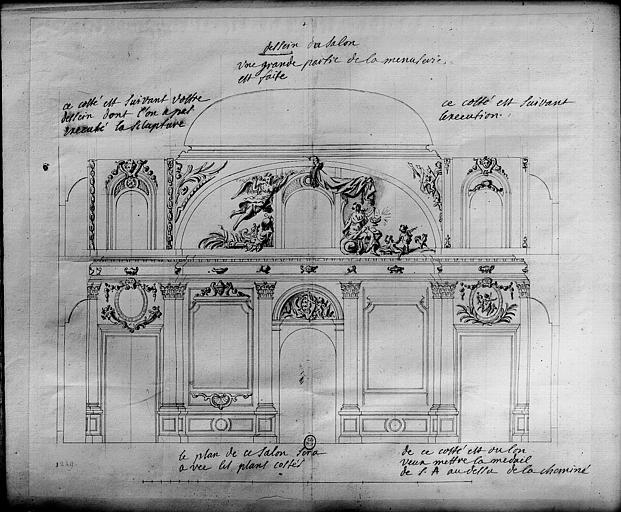 dessein du salon
une grande partie de la menuserie
est faite
ce costé est suivant vostre
dessein dont l'on a pas
executé la sculpture
ce costé est suivant
l'execution.
le plan de ce salon sera
avec les plans costés
de ce costé est ou l'on
veux mettre la medail
de S A au dessu de la cheminé